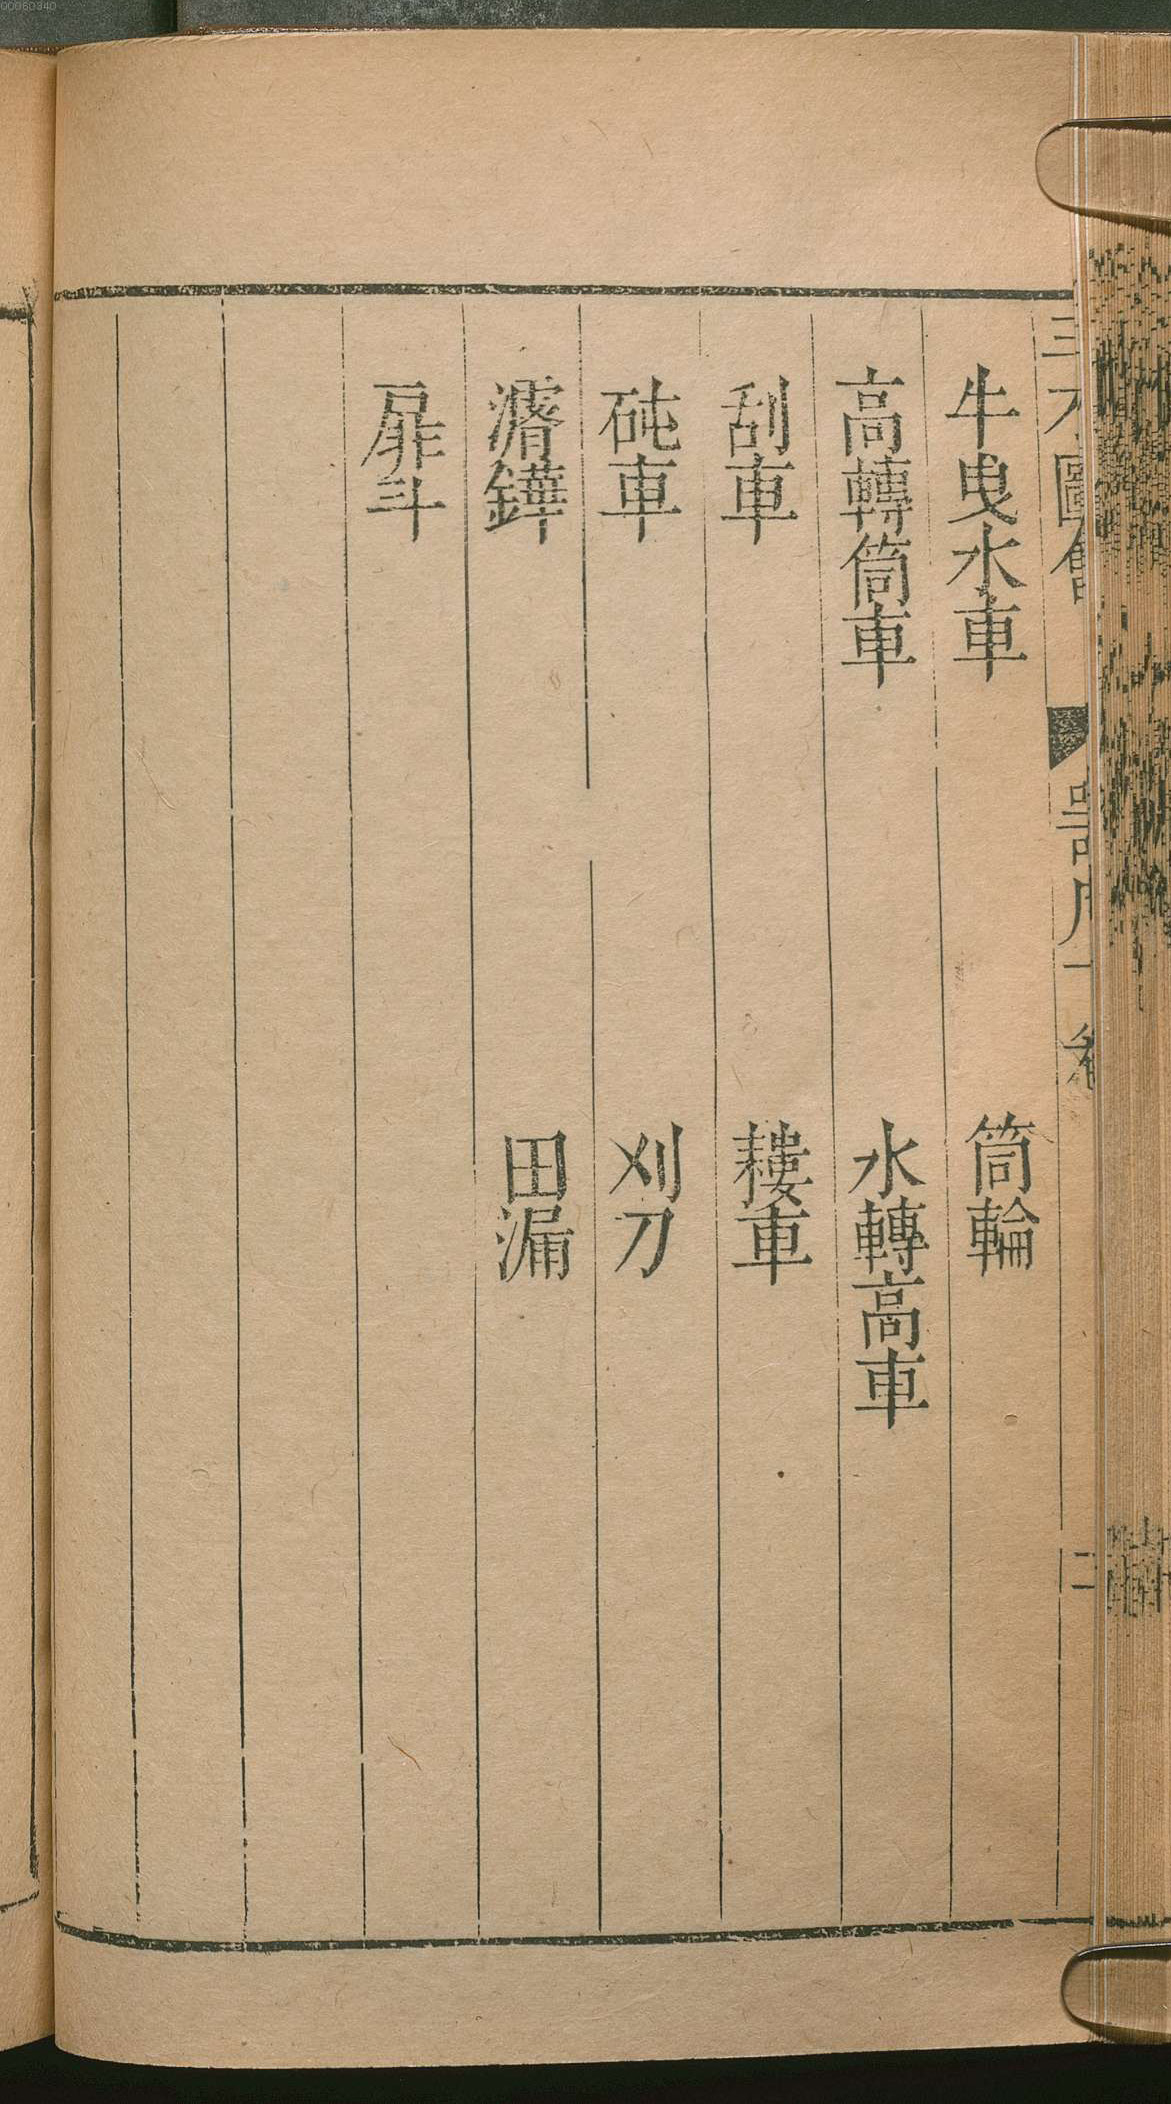 00060340
三才圖會
器用
牛曳水車　筒輪
高轉筒車　水轉高車
刮車　耬車
砘車　刈刀
濬鏵　田漏
扉斗